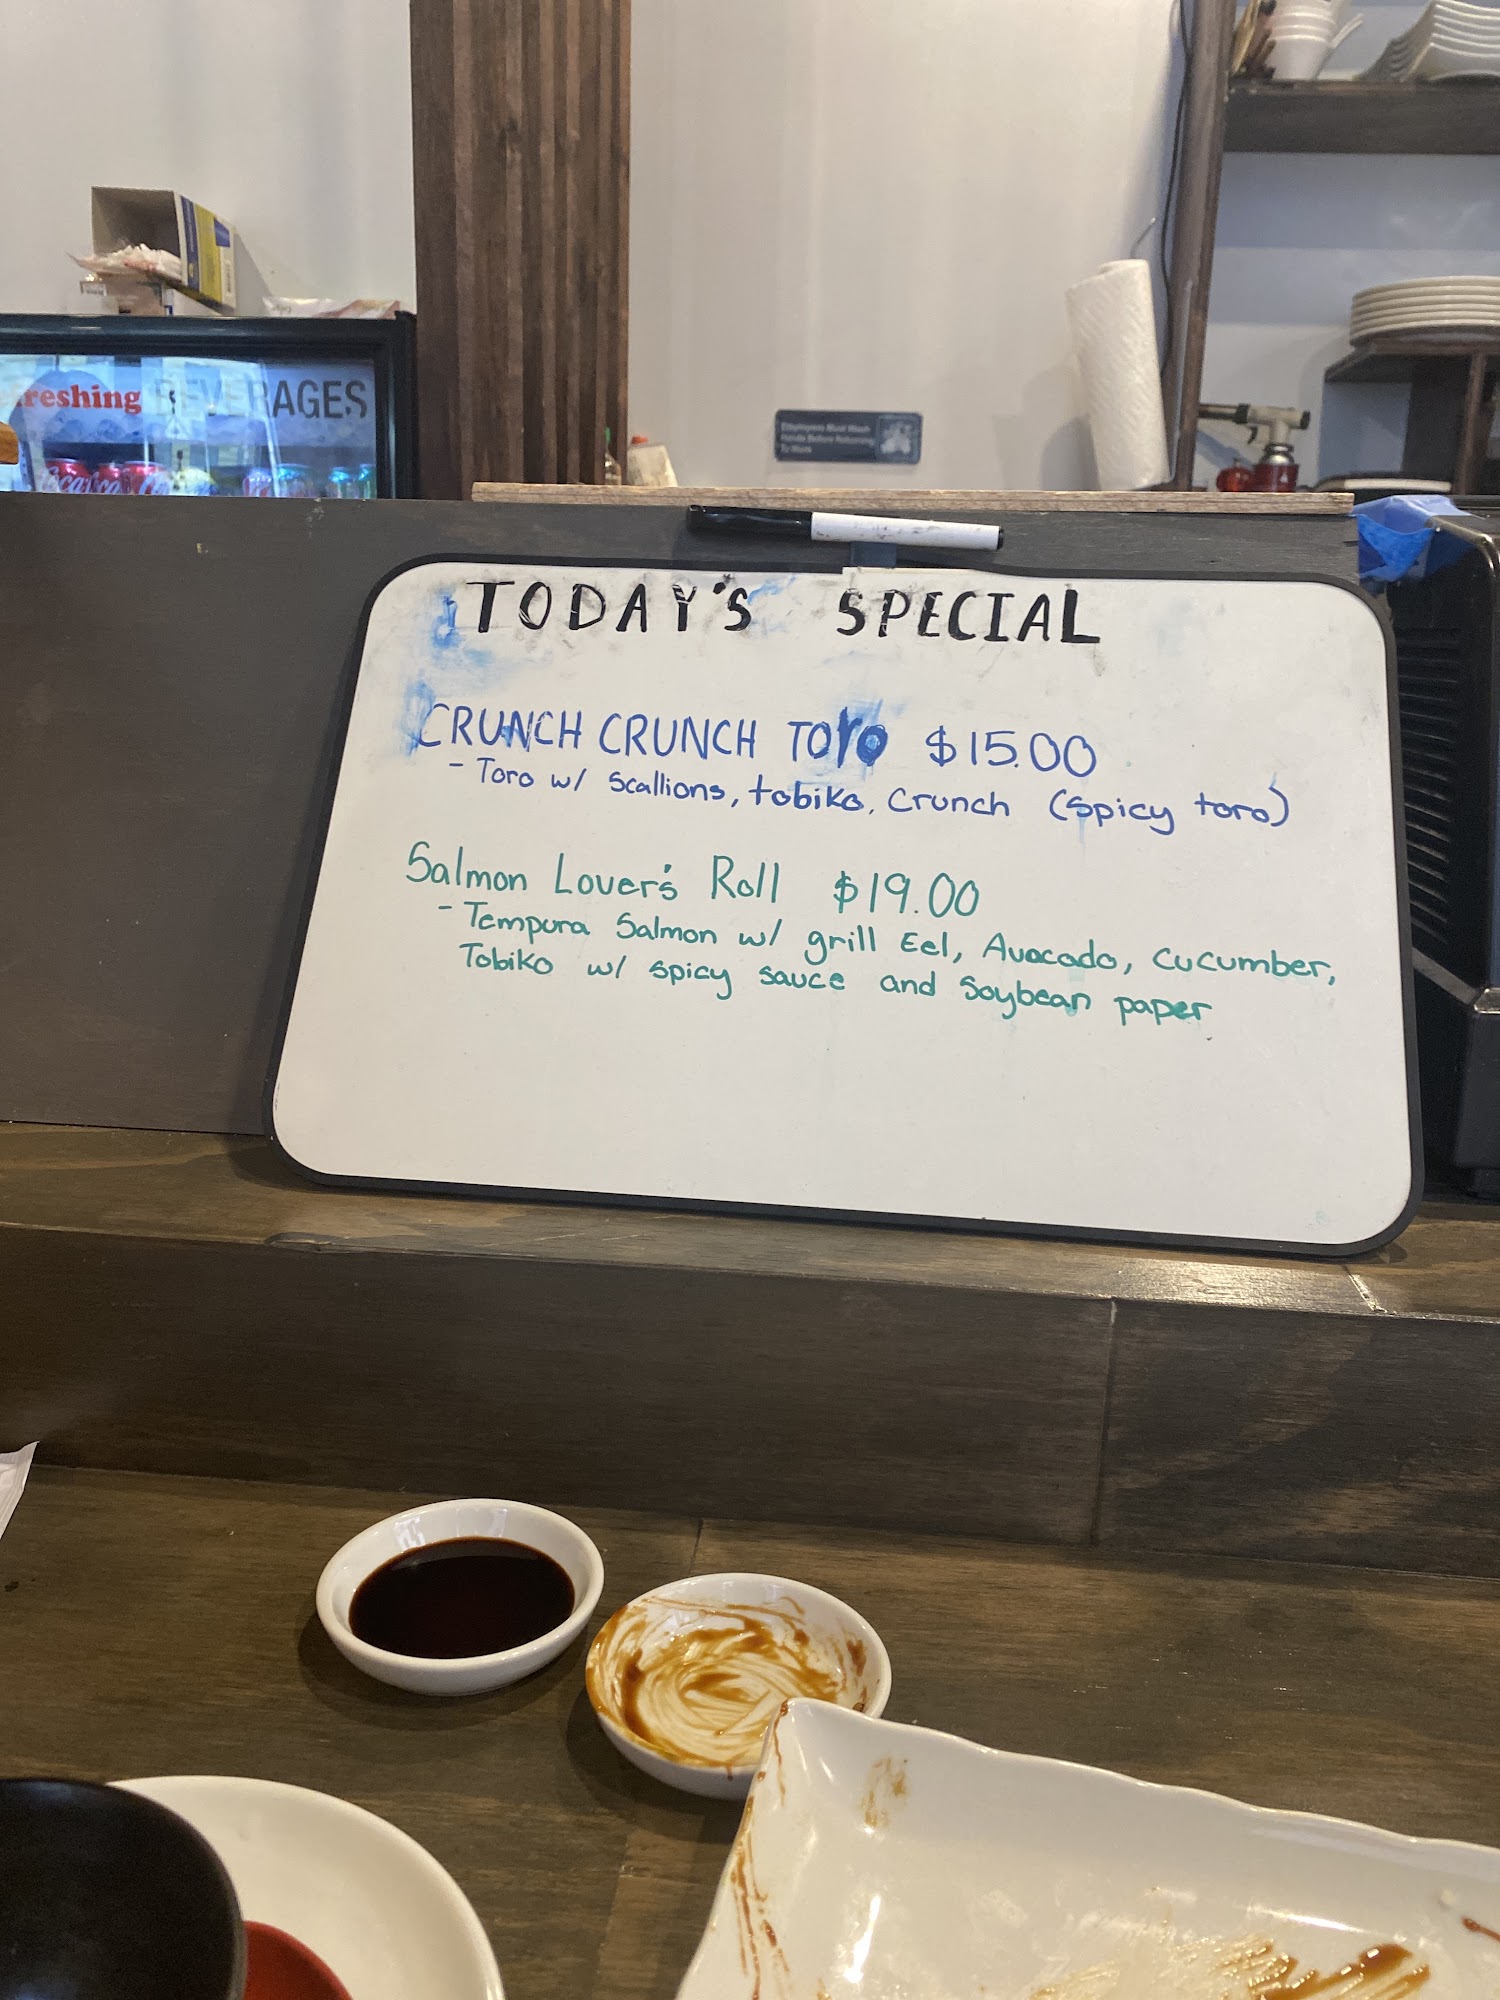 freshing BEVERAGES
Coca-Cola
Employees Must Wash
Hands Before Returning
To Work
TODAY'S SPECIAL
CRUNCH CRUNCH TORO $15.00
- Toro w/ Scallions, tobiko, Crunch (Spicy toro)
Salmon Lover's Roll $19.00
- Tempura Salmon w/ grill Eel, Avocado, Cucumber,
Tobiko w/ spicy sauce and Soybean paper